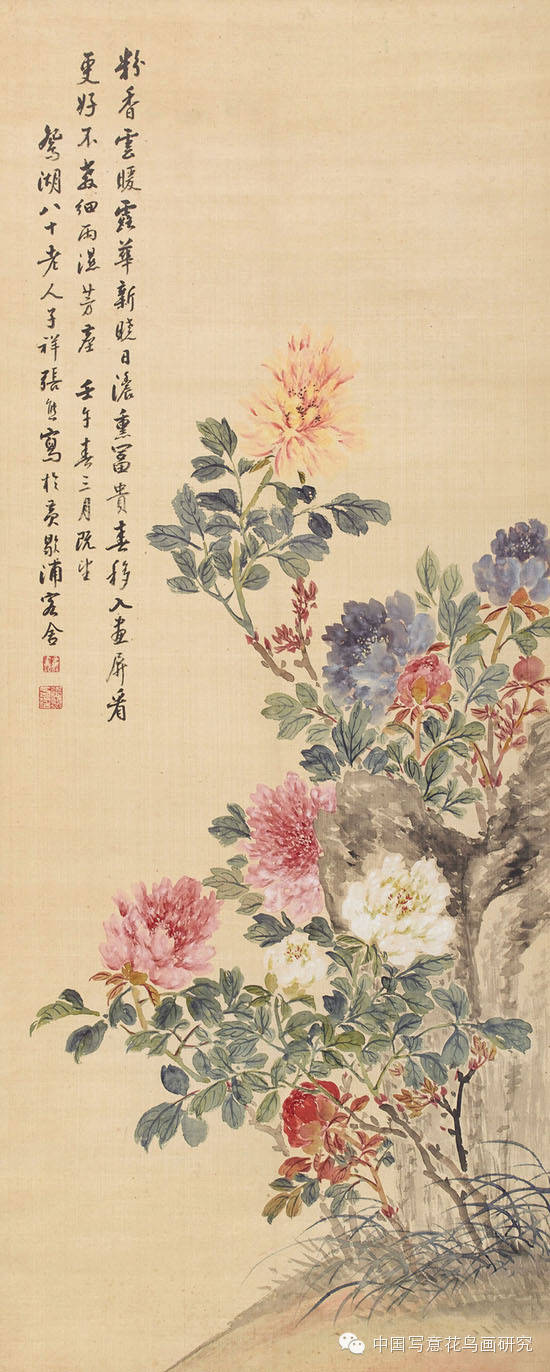 粉香雲暖露華新曉日濃熏冨貴春移入畫屏看
更好不教細雨濕芳塵 壬午春三月既望
鴛湖八十老人子祥張熊寫於黃歇浦寓舍
中国写意花鸟画研究